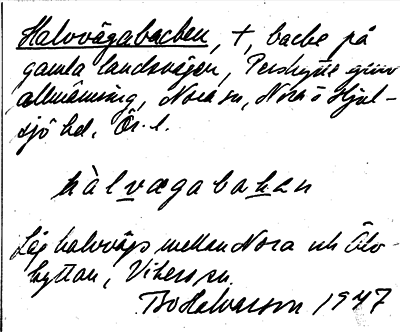 Halvvägabacken, †, backe på
gamla landsvägen, Pershytte gruv
allmänning, Nora sn, Nora o Hjul-
sjö hd, Ör. l.
hàlvægabakan
Låg halvvägs mellan Nora och Älv-
hyttan, Vikers sn.
Bo Halvarson 1947